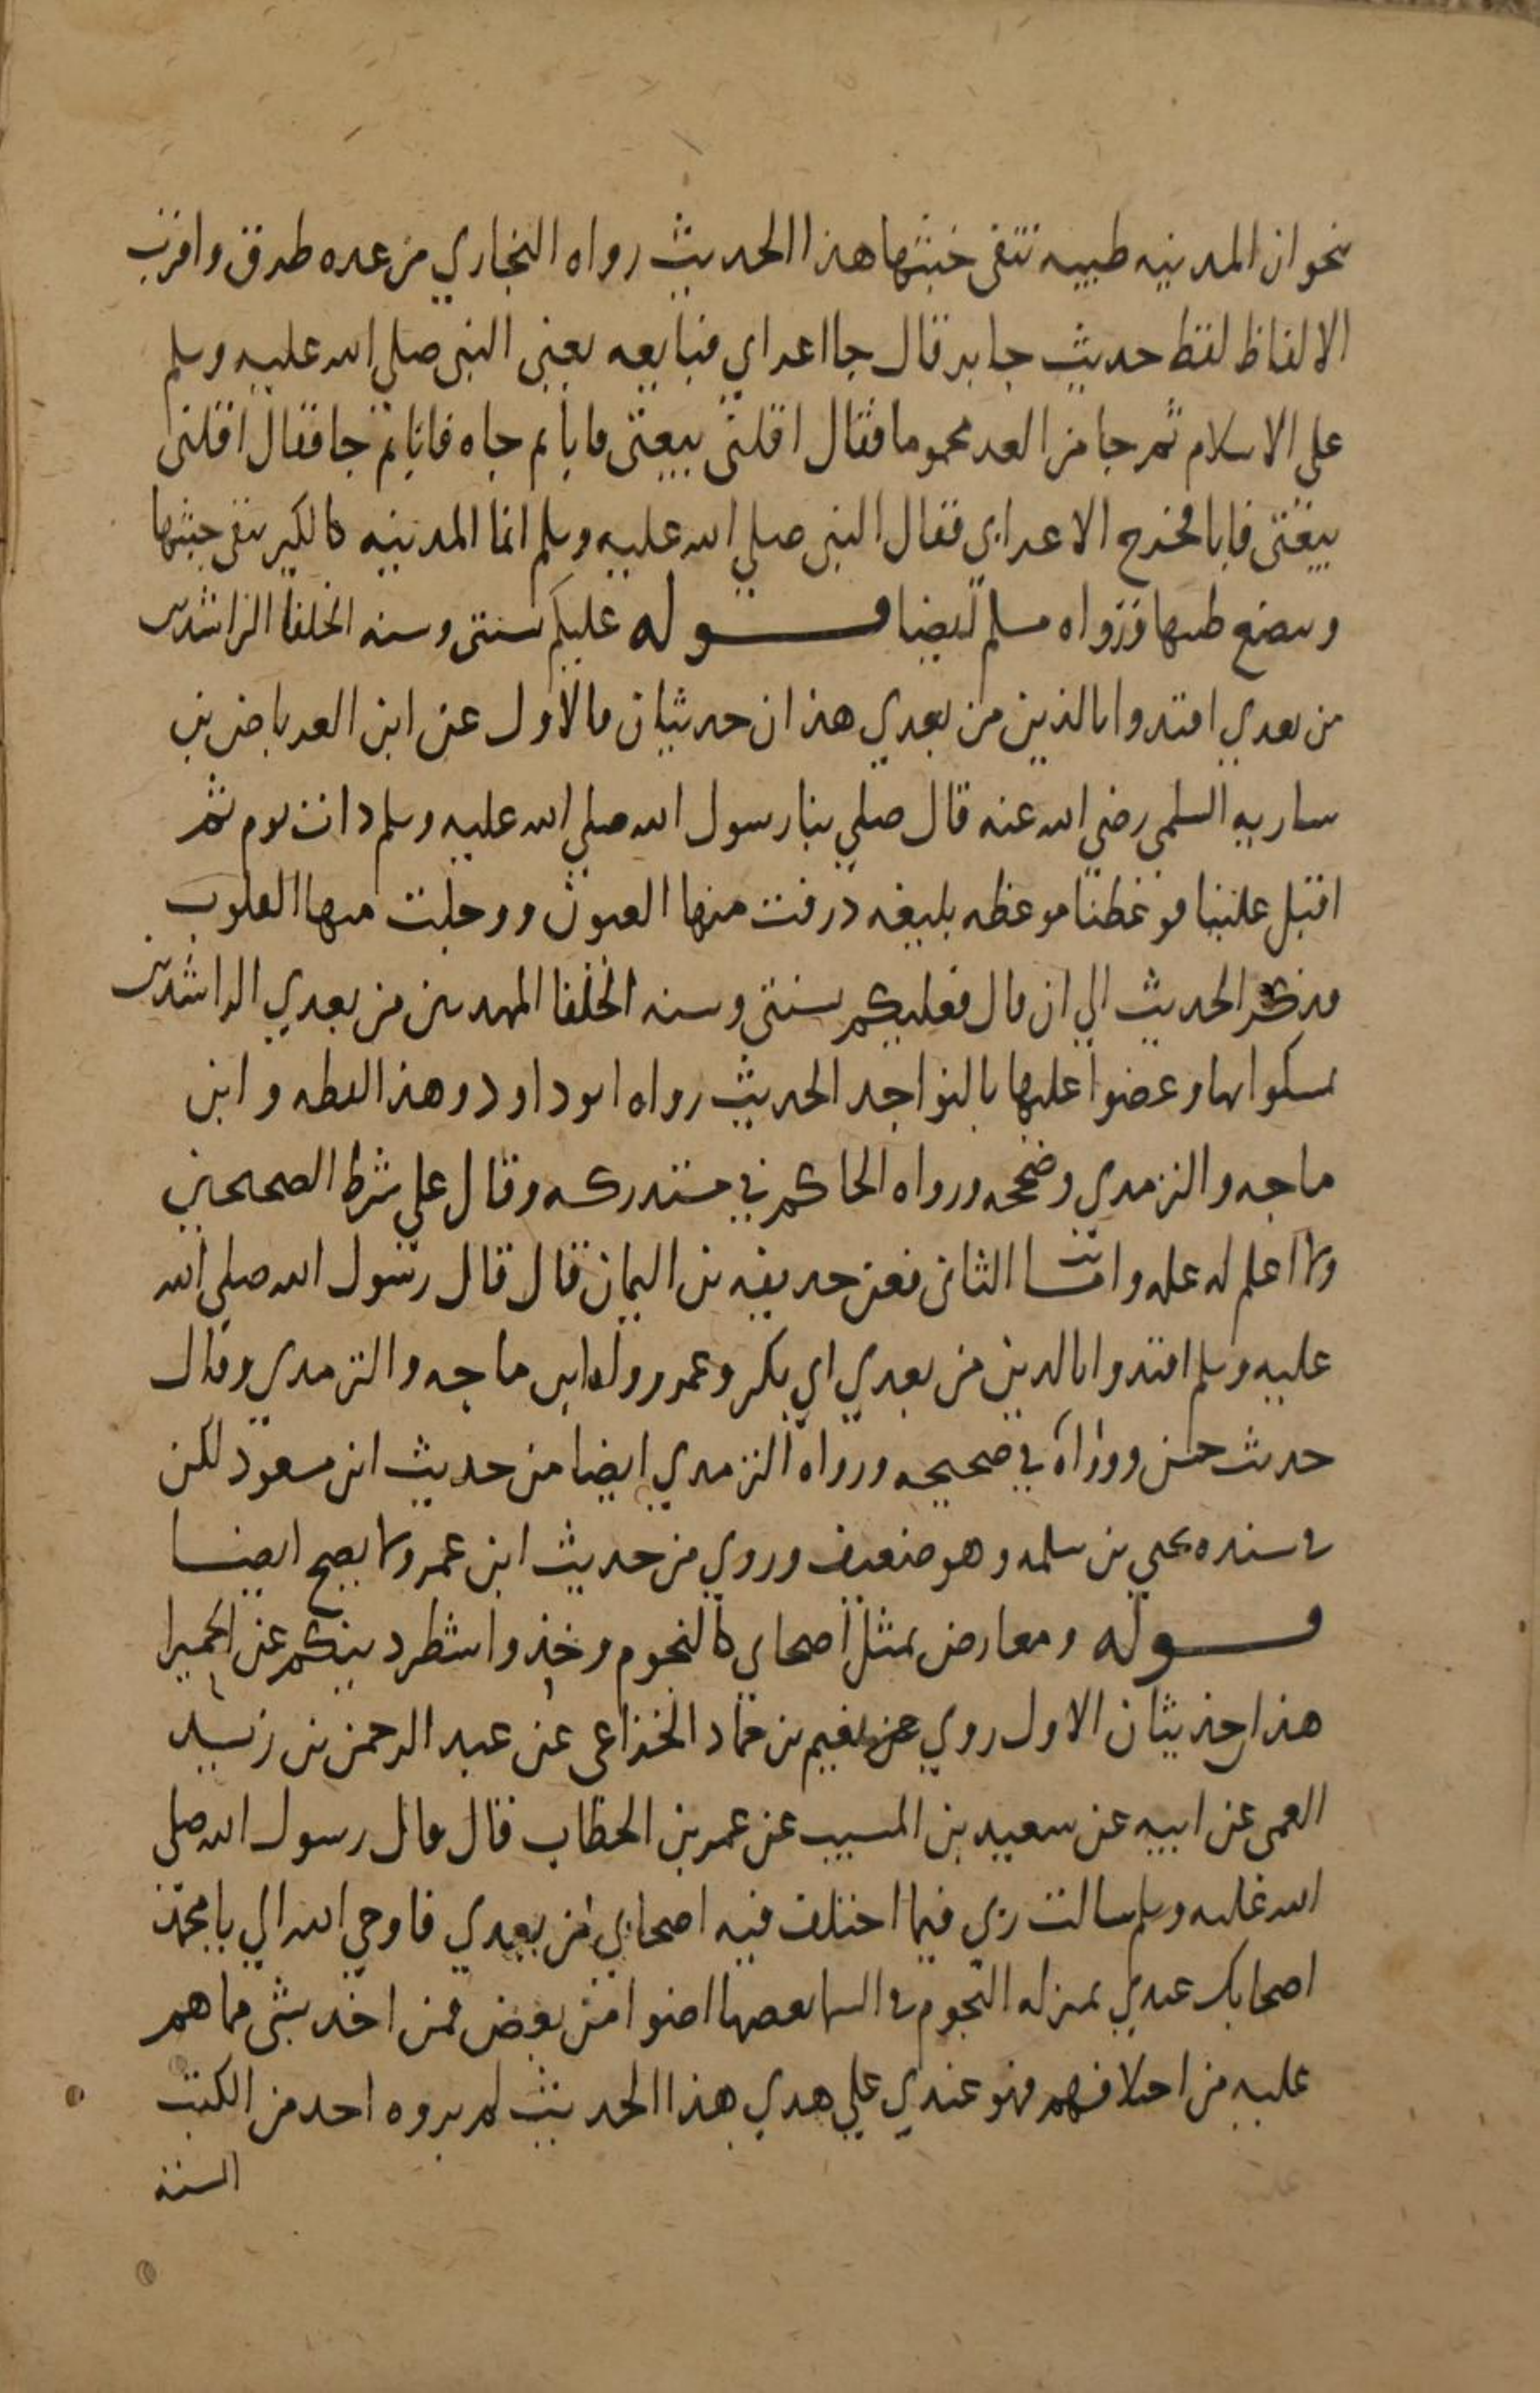 نحو ان المدينه طيبه تنقى خبثها هذا الحديث رواه البخاري من عده طرق واقرب
الالفاظ لفظ حديث جابر قال جا اعرابي فبايعه يعني النبي صلي الله عليه وسلم
علي الاسلام ثم جا من الغد محموما فقال اقلني بيعتي فابا ثم جاه فابا ثم جا فقال اقلني
بيعتي فابا فخرج الاعرابي فقال النبي صلي الله عليه وسلم انما المدينه كالكير تنفي خبثها
وينصع طيبها ورواه مسلم ايضا قوله عليكم بسنتي وسنه الخلفا الراشدين
من بعدي اقتدوا بالذين من بعدي هذان حديثان فالاول عن ابن العرباض بن
ساريه السلمي رضي الله عنه قال صلي بنا رسول الله صلي الله عليه وسلم ذات يوم ثم
اقبل علينا فوعظنا موعظه بليغه ذرفت منها العيون ووجلت منها القلوب
فذكر الحديث الي ان قال فعليكم بسنتي وسنه الخلفا المهديين من بعدي الراشدين
تمسكوا بها وعضوا عليها بالنواجد الحديث رواه ابو داود وهذا لفظه وابن
ماجه والترمدي وصححه ورواه الحاكم في مستدركه وقال علي شرط الصحيحين
ولا اعلم له عله واما الثاني فعن حديفه بن اليمان قال قال رسول الله صلي الله
عليه وسلم اقتدوا بالدين من بعدي ابي بكر وعمر رواه ابن ماجه والترمدي وقال
حديث حسن ورواه في صحيحه ورواه الترمدي ايضا من حديث ابن مسعود لكن
في سنده يحيي بن سلمه وهو ضعيف وروي من حديث ابن عمر ولا يصح ايضا
قوله ومعارض بمثل اصحابي كالنجوم وخذوا شطر دينكم عن الحميرا
هذا حديثان الاول روي عن نعيم بن حماد الخزاعي عن عبد الرحمن بن زيد
العمي عن ابيه عن سعيد بن المسيب عن عمر بن الخطاب قال قال رسول الله صلي
الله عليه وسلم سالت ربي فيما اختلف فيه اصحابي من بعدي فاوحي الله الي يا محمد
اصحابك عندي بمنزله النجوم في السما بعضها اضوا من بعض فمن اخد بشي مما هم
عليه من اختلافهم فهو عندي علي هدي هذا الحديث لم يروه احد من الكتب
الستة